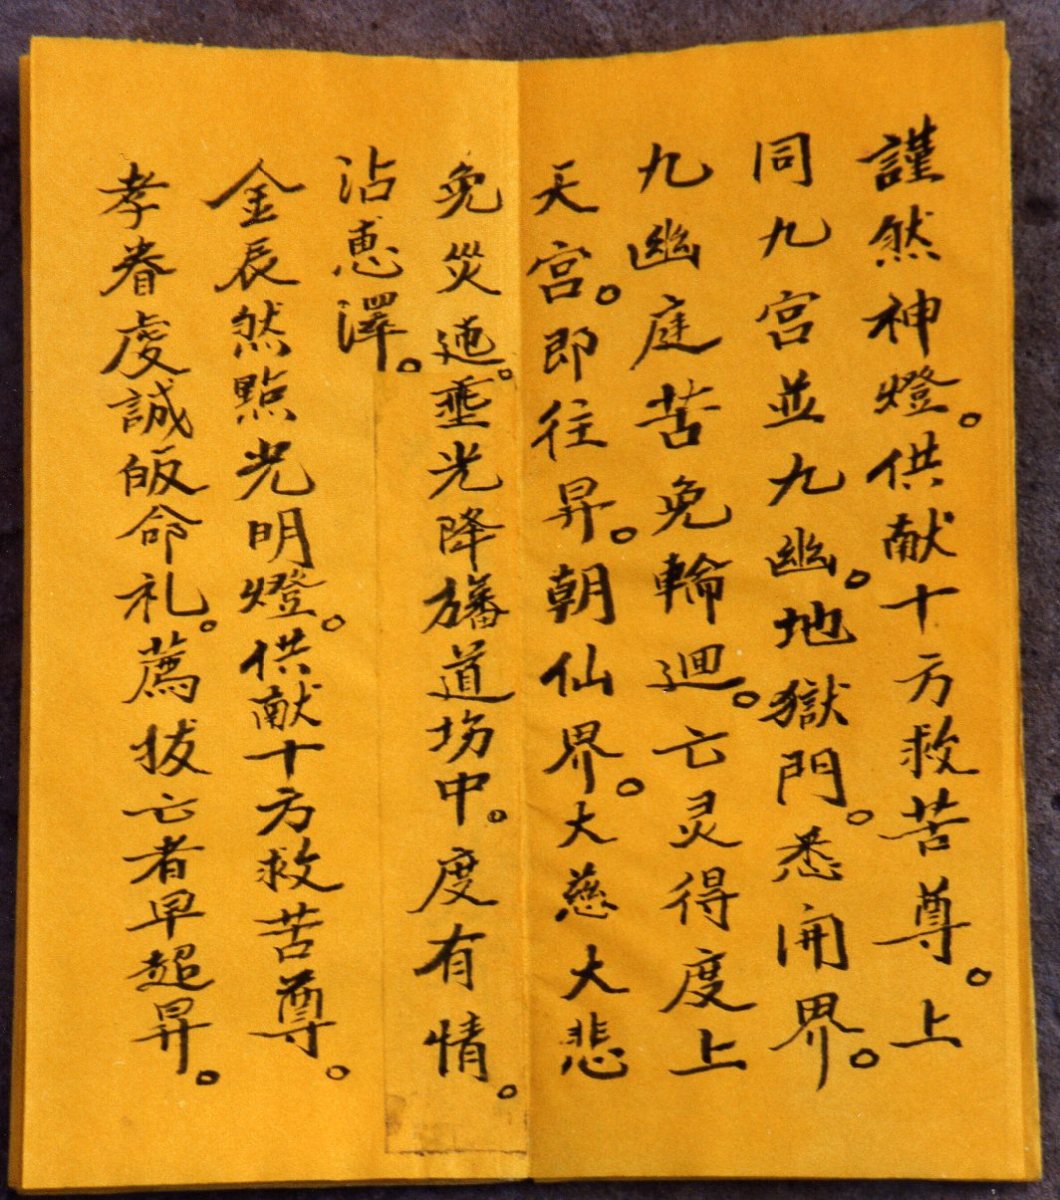 謹然神燈。供献十方救苦尊。上
同九宮並九幽。地獄門。悉開界。
九幽庭苦免輪迴。亡灵得度上
天宮。即往昇。朝仙界。大慈大悲
免災迍。垂光降旛道場中。度有情。
沾恵澤。
金辰然點光明燈。供献十方救苦尊。
孝眷虔誠皈命礼。薦拔亡者早超昇。